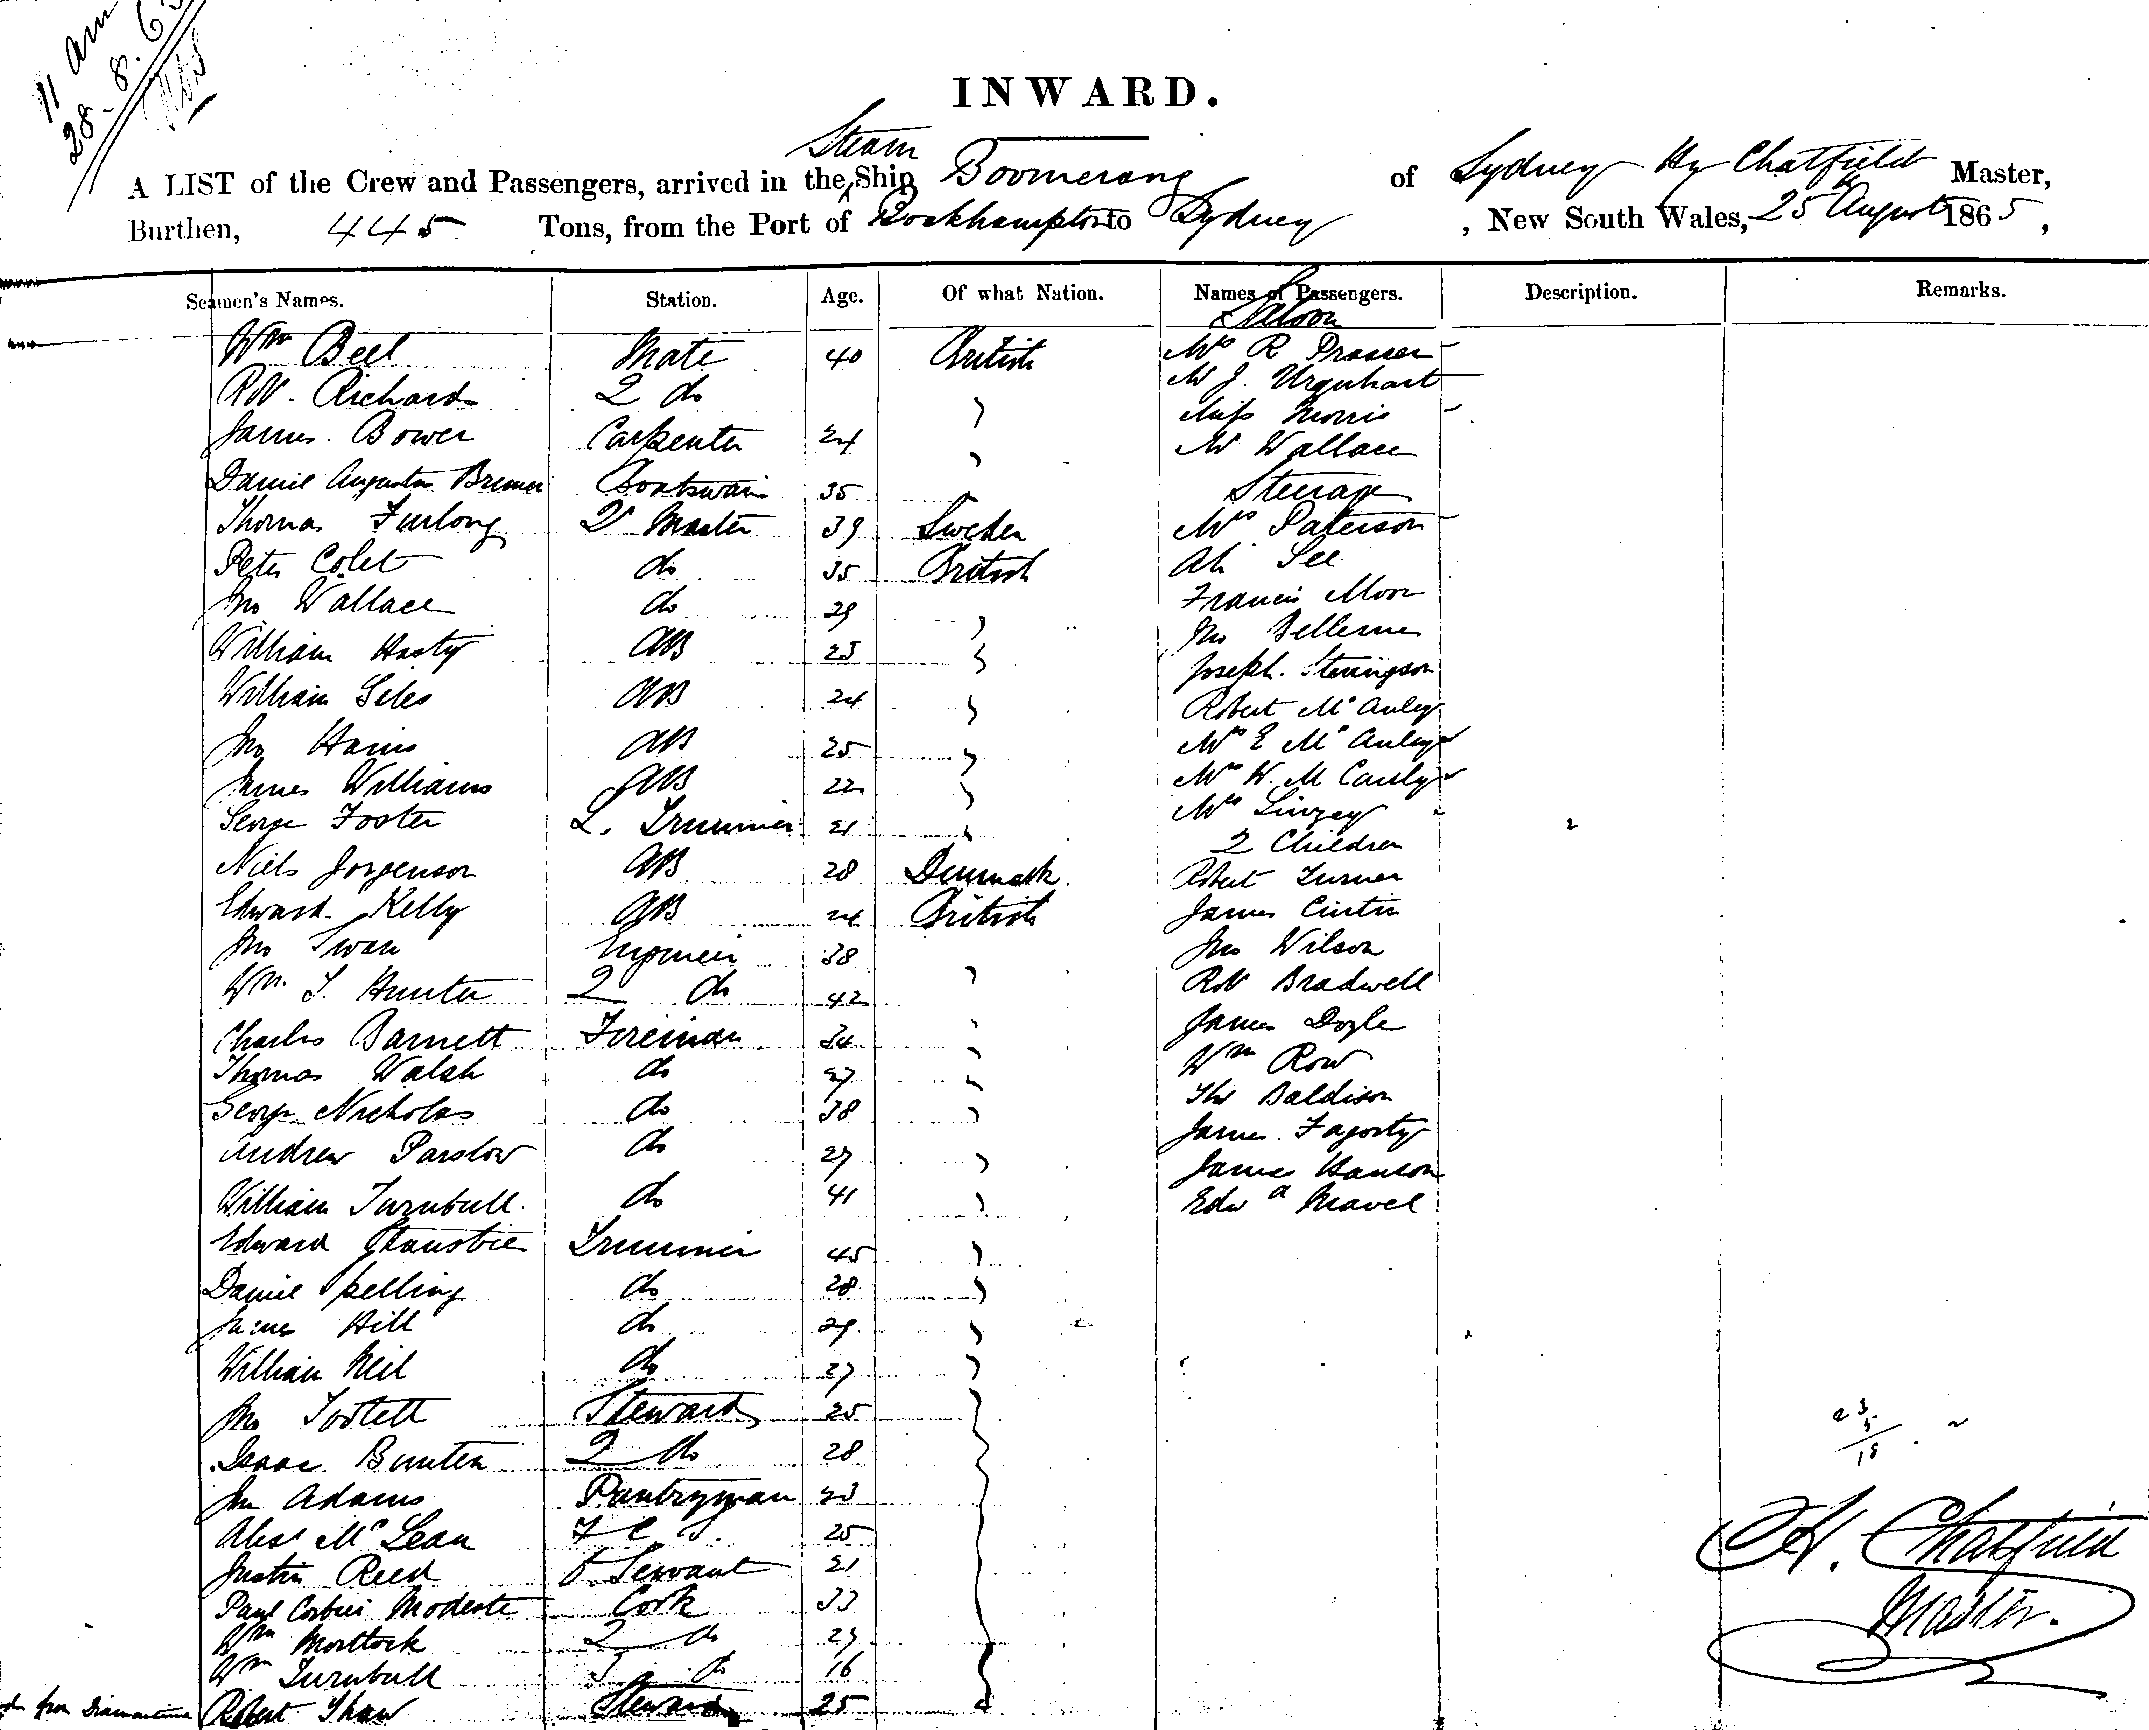 11 am
28-8.65
INWARD.
Steam
A LIST of the Crew and Passengers, arrived in the Ship Boomerang of Sydney Hy Chatfield Master,
Burthen, 445 Tons, from the Port of Rockhampton to Sydney, New South Wales, 25 August 1865,
Seamen's Names. Station. Age. Of what Nation. Names of Passengers. Description. Remarks.
Saloon
Wm Bell Mate 40 British Mrs R Prosser
Robt. Richards 2 do Mr J. Urquhart
James. Bower Carpenter 24 Miss Morris
Mr Wallace
Daniel Augustus Bremer Boatswain 35 Steerage
Thomas Furlong Qr Master 39 Sweden Mrs Paterson
Peter Colet do 35 British Ah See
Jno Wallace do 29 Francis Moor
William Hasty AB 25 Jno
William Giles AB 24 Joseph.
Jno Harris AB 25 Robert McAuley
James Williams AB 22 Mrs E McAuley
George Foster L. Trimmer 21 Mrs W. McCauly
Niels Jorgenson AB 28 Denmark Mrs Linzey
2 Children
Edward Kelly AB 24 British Robert Turner
Jno Swan Engineer 38 James
Wm. T. Hunter 2 do 42 Jno Wilson
Charles Barnett Fireman 34 Robt Bradwell
Thomas Walsh do 27 James Doyle
George Nicholas do 38 Wm Row
Andrew Parslow do 27 Thos Baldison
William Turnbull do 41 James Fagorty
Edward Trimmer 45 James Hanson
Daniel Spelling do 28 Edwd Mavel
James Hill do 29
William Neil do 27
Jno Tostell Steward 25
Isaac Bunten 2 do 28
Jno Adams Pantryman 23
Alexr McLean F C S. 25
Justin Reed Servant 21
Paul Modeste Cook 33
Wm Mortlock 2 do 29
Wm Turnbull 3 do 16
from Diamantina Robert Shaw Steward 25
23
5
18
H. Chatfield
Master.